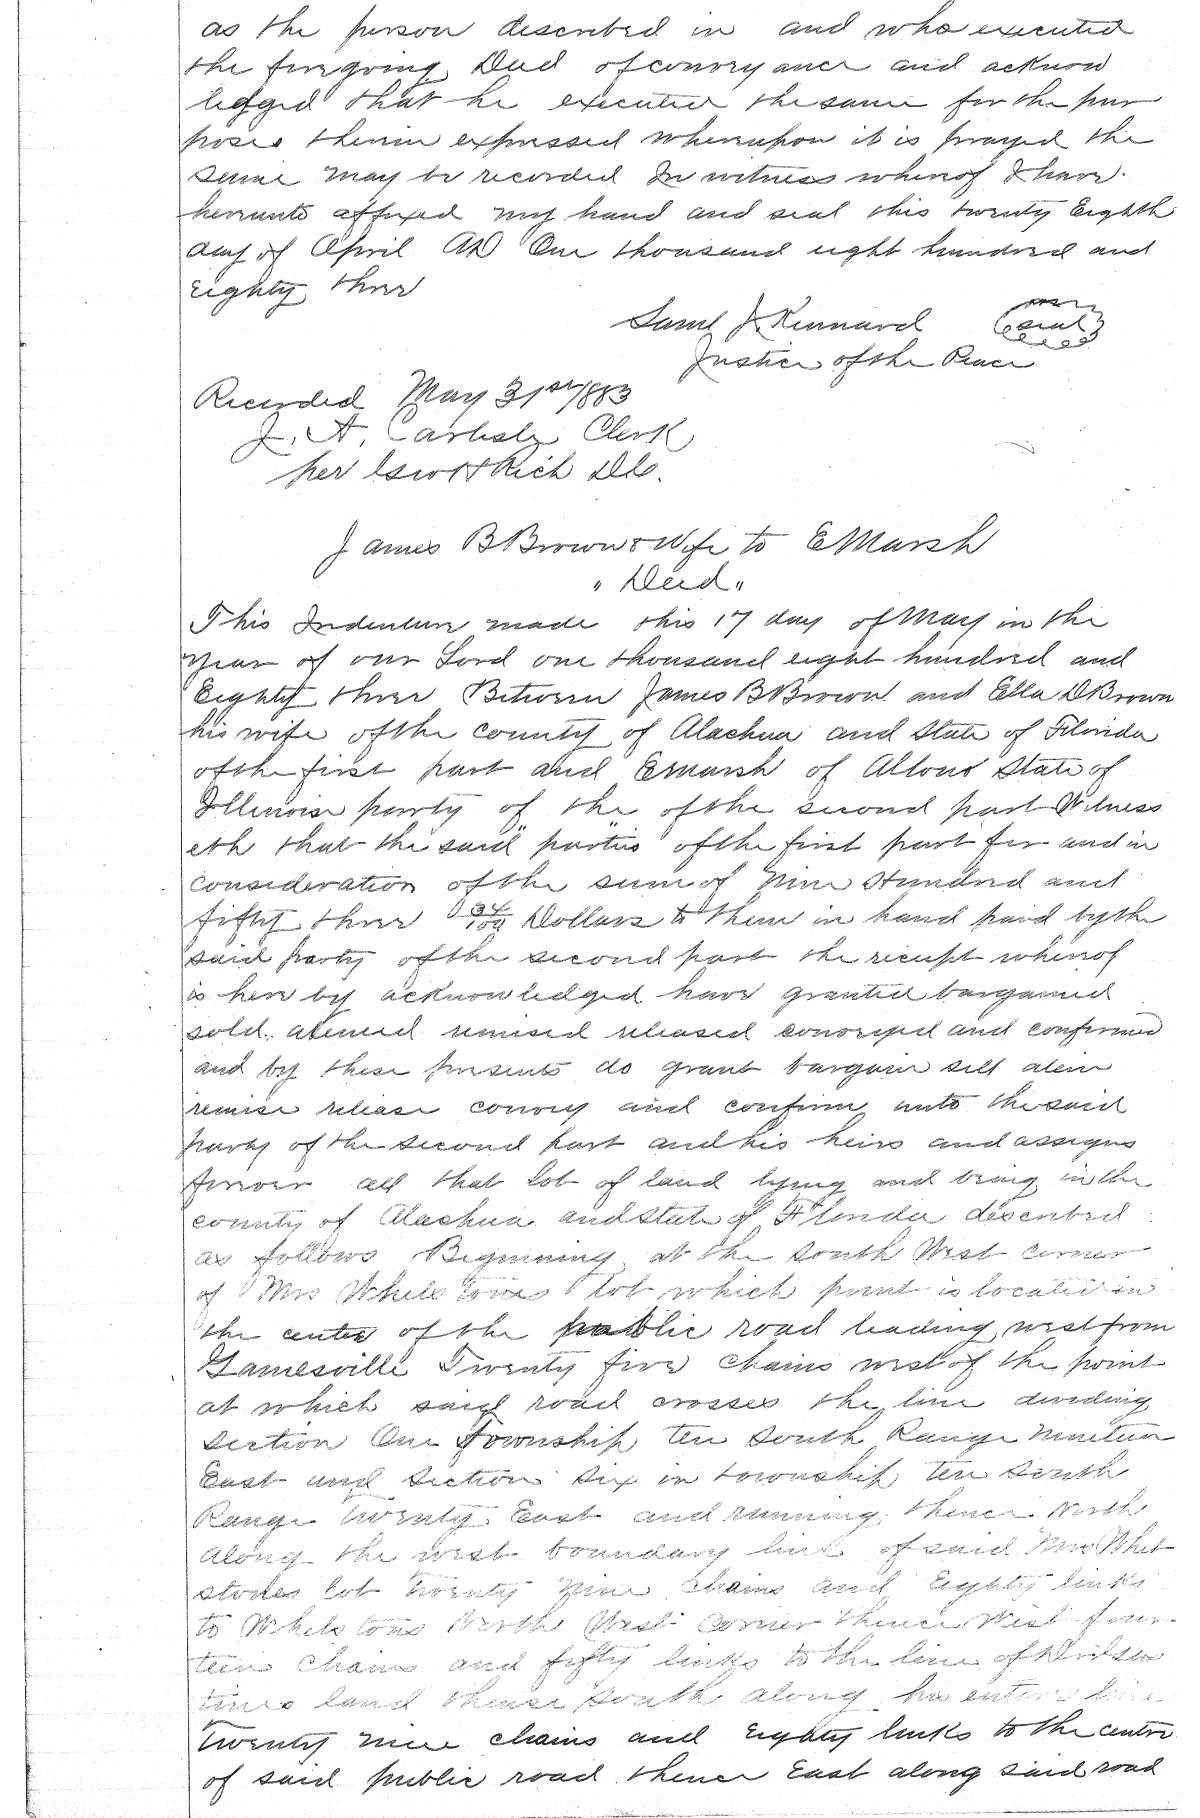 as the person described in and who executed
the foregoing Deed of conveyance and acknow
ledged that he executed the same for the pur
poses therein expressed whereupon it is prayed the
same may be recorded In witness whereof I have
hereunto affixed my hand and seal this twenty Eighth
day of April AD One thousand eight hundred and
eighty three
Saml J. Kennard (seal)
Justice of the Peace
Recorded May 31st 1883
J. A. Carlisle Clerk
per H Rich DC.
James B Brown & Wife to E Marsh
" Deed "
This Indenture made this 17 day of May in the
year of our Lord one thousand eight hundred and
Eighty three Between James B Brown and Ella D Brown
his wife of the county of Alachua and State of Florida
of the first part and E Marsh of Alton State of
Illinois party of the of the second part Witness
eth that the said parties of the first part for and in
consideration of the sum of Nine Hundred and
fifty three 34/100 Dollars to them in hand paid by the
said party of the second part the receipt whereof
is here by acknowledged have granted bargained
sold. aliened remised released conveyed and confirmed
and by these presents do grant bargain sell alien
remise release convey and confirm unto the said
party of the second part and his heirs and assigns
forever all that Lot of land lying and being in the
county of Alachua and State of Florida described
as follows Beginning at the South West corner
of Mrs Whetstones lot which point is located in
the center of the public road leading west from
Gainesville Twenty five chains west of the point
at which said road crosses the line dividing
Section One Township ten South Range Nineteen
East and Section Six in township ten South
Range twenty East and running thence North
along the west boundary line of said Mrs Whet
stones lot twenty Nine chains and Eighty links
to Whetstons North West corner thence West four
teen chains and fifty links to the line of
land thence South along his entire line
twenty nine chains and eighty links to the centre
of said public road thence East along said road